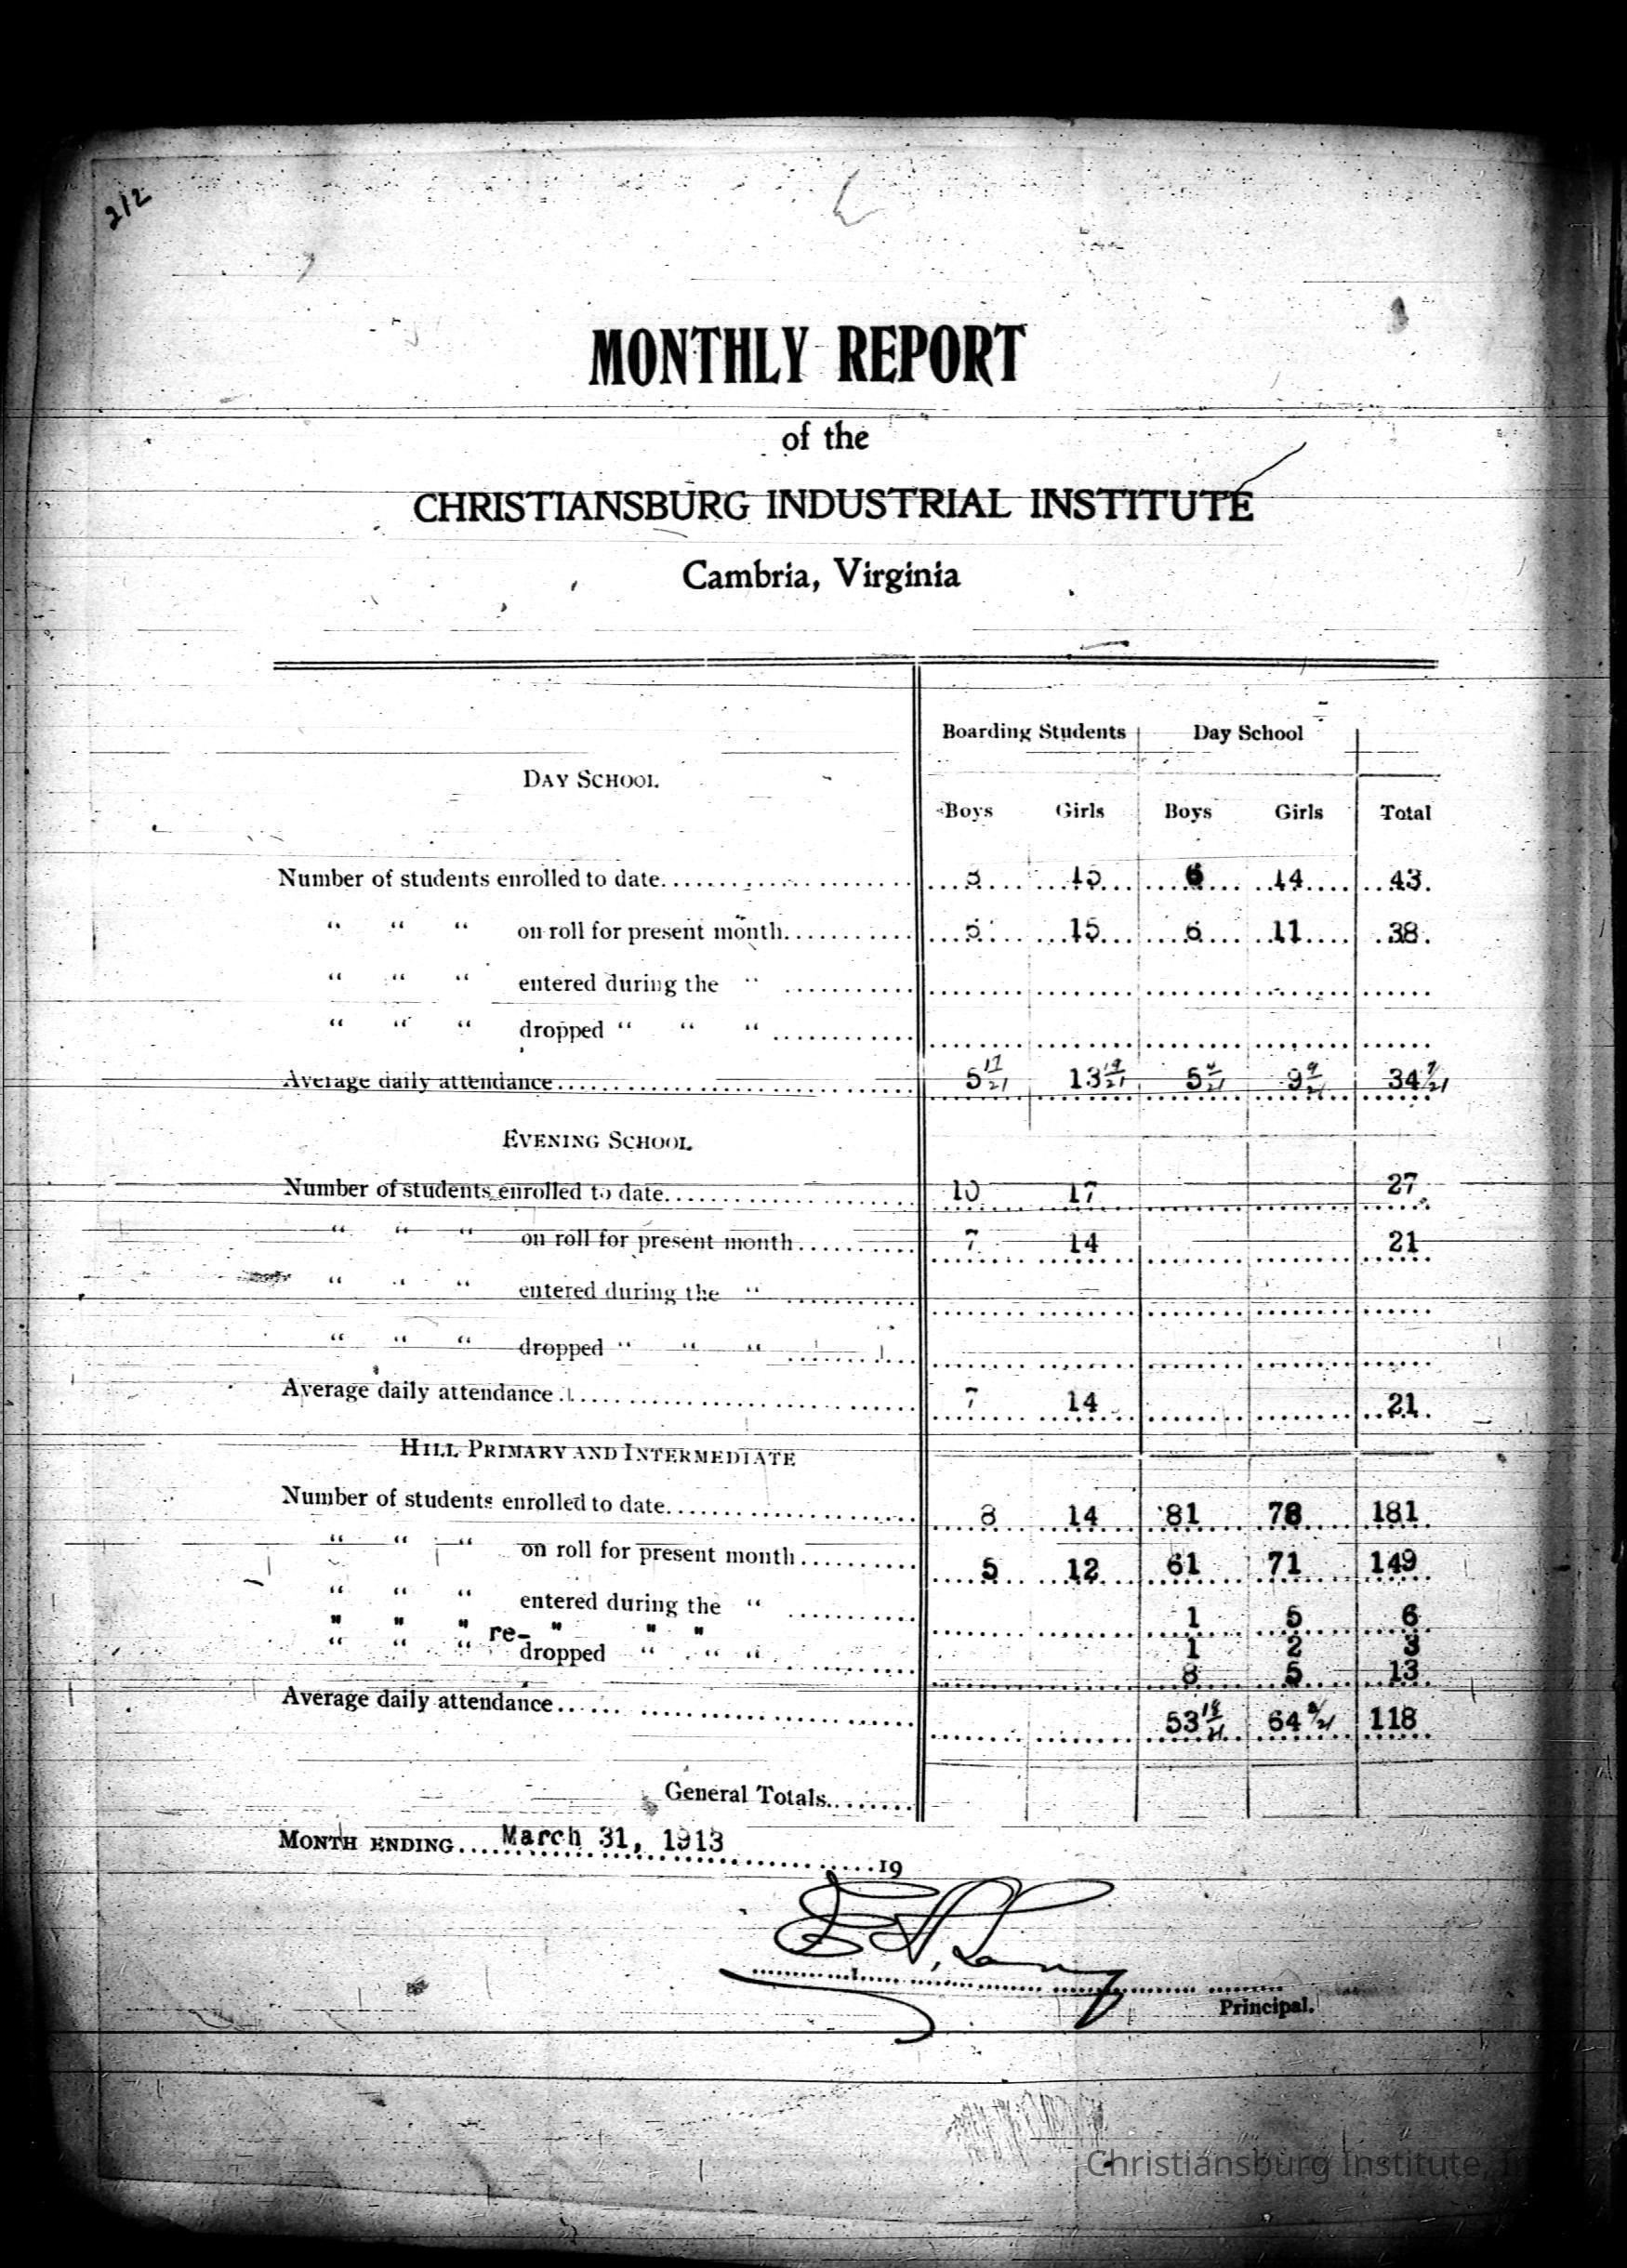 212
MONTHLY REPORT
of the
CHRISTIANSBURG INDUSTRIAL INSTITUTE
Cambria, Virginia
Boarding Students Day School
DAY SCHOOL
Boys Girls Boys Girls Total
Number of students enrolled to date 15 6 14 43
“ “ “ on roll for present month 15 6 11 38
“ “ “ entered during the “
“ “ “ dropped “ “ “
Average daily attendance 5 17/21 13 5 9 34
EVENING SCHOOL
Number of students enrolled to date 10 17 27
“ “ “ on roll for present month 7 14 21
“ “ “ entered during the “
“ “ “ dropped “ “ “
Average daily attendance 7 14 21
HILL PRIMARY AND INTERMEDIATE
Number of students enrolled to date 8 14 81 78 181
“ “ “ on roll for present month 5 12 61 71 149
“ “ “ entered during the “ 1 5 6
" " " re- " " " 1 2 3
“ “ “ dropped “ “ “ 8 5 13
Average daily attendance 53 64 118
General Totals
MONTH ENDING March 31, 1913 19
Principal.
Christiansburg Institute, In